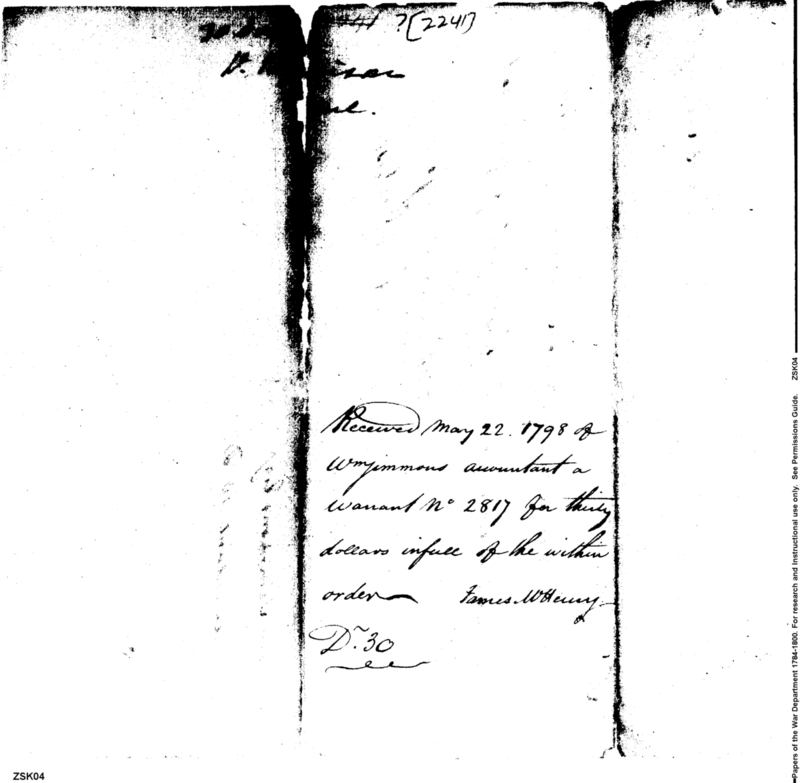 ?[2241]
Received May 22. 1798 of
Wm Simmons accountant a
warrant No 2817 for thirty
dollars in full of the within
order James McHenry
Dr. 30
ZSK04
Papers of the War Department 1784-1800. For research and Instructional use only. See Permissions Guide. ZSK04